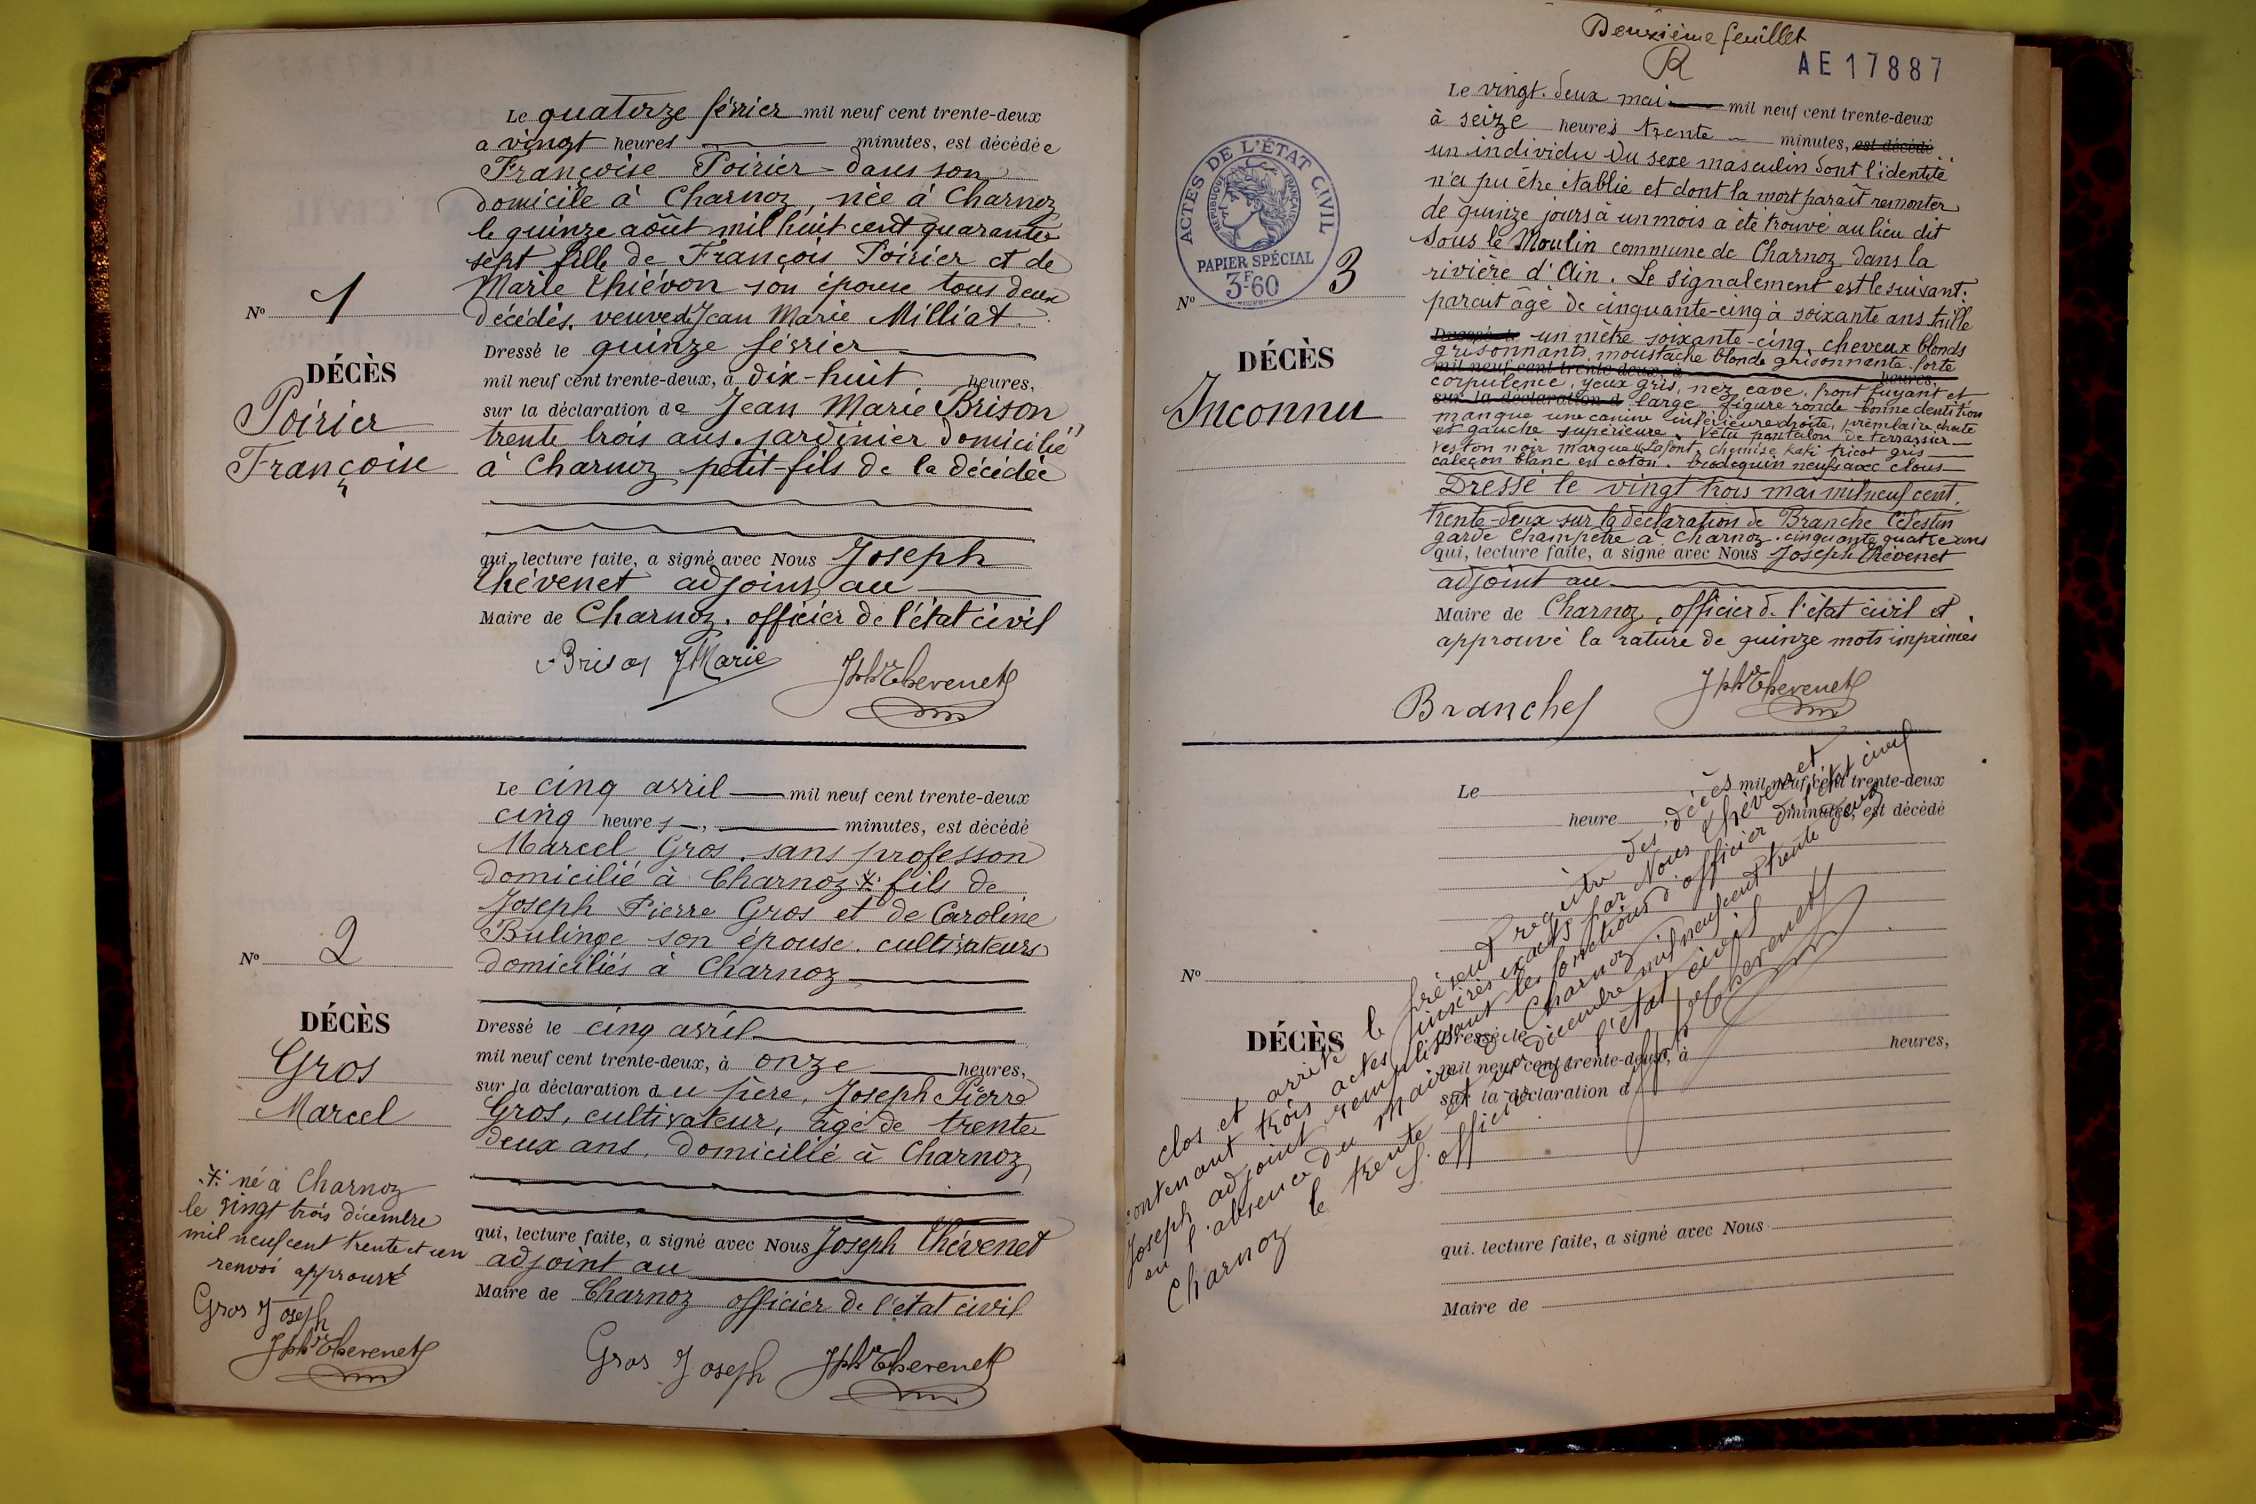 Le quatorze février mil neuf cent trente-deux
a vingt heures minutes, est décédée
Françoise Poirier dans son
domicile à Charnoz, née à Charnoz
le quinze août mil huit cent quarante
sept fille de François Poirier et de
Marie Thiévon son épouse tous deux
décédés. veuve de Jean Marie Milliat
Nº 1
DÉCÈS
Poirier
Françoise
Dressé le quinze février
mil neuf cent trente-deux, à dix-huit heures,
sur la déclaration de Jean Marie Brison
trente trois ans. jardinier domicilié
à Charnoz petit-fils de la décédée
qui, lecture faite, a signé avec Nous Joseph
Thévenet adjoint au
Maire de Charnoz. officier de l'état civil
Brison J Marie Jph Thevenet
Le cinq avril mil neuf cent trente-deux
cinq heures, minutes, est décédé
Marcel Gros. sans professon
domicilié à Charnoz ⁜ fils de
Joseph Pierre Gros et de Caroline
Bulinge son épouse. cultivateurs
domiciliés à Charnoz
Nº 2
DÉCÈS
Gros
Marcel
⁜ né à Charnoz
le vingt trois décembre
mil neuf cent trente et un
renvoi approuvé
Gros Joseph
Jph Thevenet
Dressé le cinq avril
mil neuf cent trente-deux, à onze heures,
sur la déclaration du père, Joseph Pierre
Gros, cultivateur, âgé de trente
deux ans, domicilié à Charnoz
qui, lecture faite, a signé avec Nous Joseph Thévenet
adjoint au
Maire de Charnoz officier de l'état civil
Gros Joseph Jph Thevenet
Deuxième feuillet
R
AE17887
ACTES DE L'ÉTAT CIVIL
RÉPUBLIQUE FRANÇAISE
PAPIER SPÉCIAL
3F60
Nº 3
DÉCÈS
Inconnu
Le vingt-deux mai mil neuf cent trente-deux
à seize heures trente minutes, est décédé
un individu du sexe masculin dont l'identité
n'a pu être établie et dont la mort paraît remonter
de quinze jours à un mois a été trouvé au lieu dit
Sous le Moulin commune de Charnoz dans la
rivière d'Ain. Le signalement est le suivant.
parait âgé de cinquante-cinq à soixante ans taille
Dressé le un mètre soixante-cinq, cheveux blonds
grisonnants, moustache blonde grisonnante forte
mil neuf cent trente-deux, à heures,
corpulence, yeux gris, nez cave, front fuyant et
sur la déclaration d large figure ronde bonne dentition
manque une canine inférieure droite, prémlaire droite
et gauche supérieure. Vêtu pantalon de terrassier
veston noir marque Lafont, chemise kaki tricot gris
caleçon blanc en coton. brodequin neufs avec clous
Dressé le vingt trois mai mil neuf cent
trente-deux sur la déclaration de Branche Célestin
garde Champêtre à Charnoz. cinquante quatre ans
qui, lecture faite, a signé avec Nous Joseph Thévenet
adjoint au
Maire de Charnoz, officier de l'état civil et
approuvé la rature de quinze mots imprimés
Branche Jph Thevenet
Le mil neuf cent trente-deux
heure minutes, est décédé
Nº
DÉCÈS
Dressé le
mil neuf cent trente-deux, à heures,
sur la déclaration d
qui, lecture faite, a signé avec Nous
Maire de
clos et arrêté le présent registre des décès
contenant trois actes inscrits exacts par Nous Thévenet
Joseph adjoint remplissant les fonctions d'officier d'état civil
en l'absence du Maire
Charnoz le trente et un décembre mil neuf cent trente deux
L'officier de l'état civil
Jph Thevenet